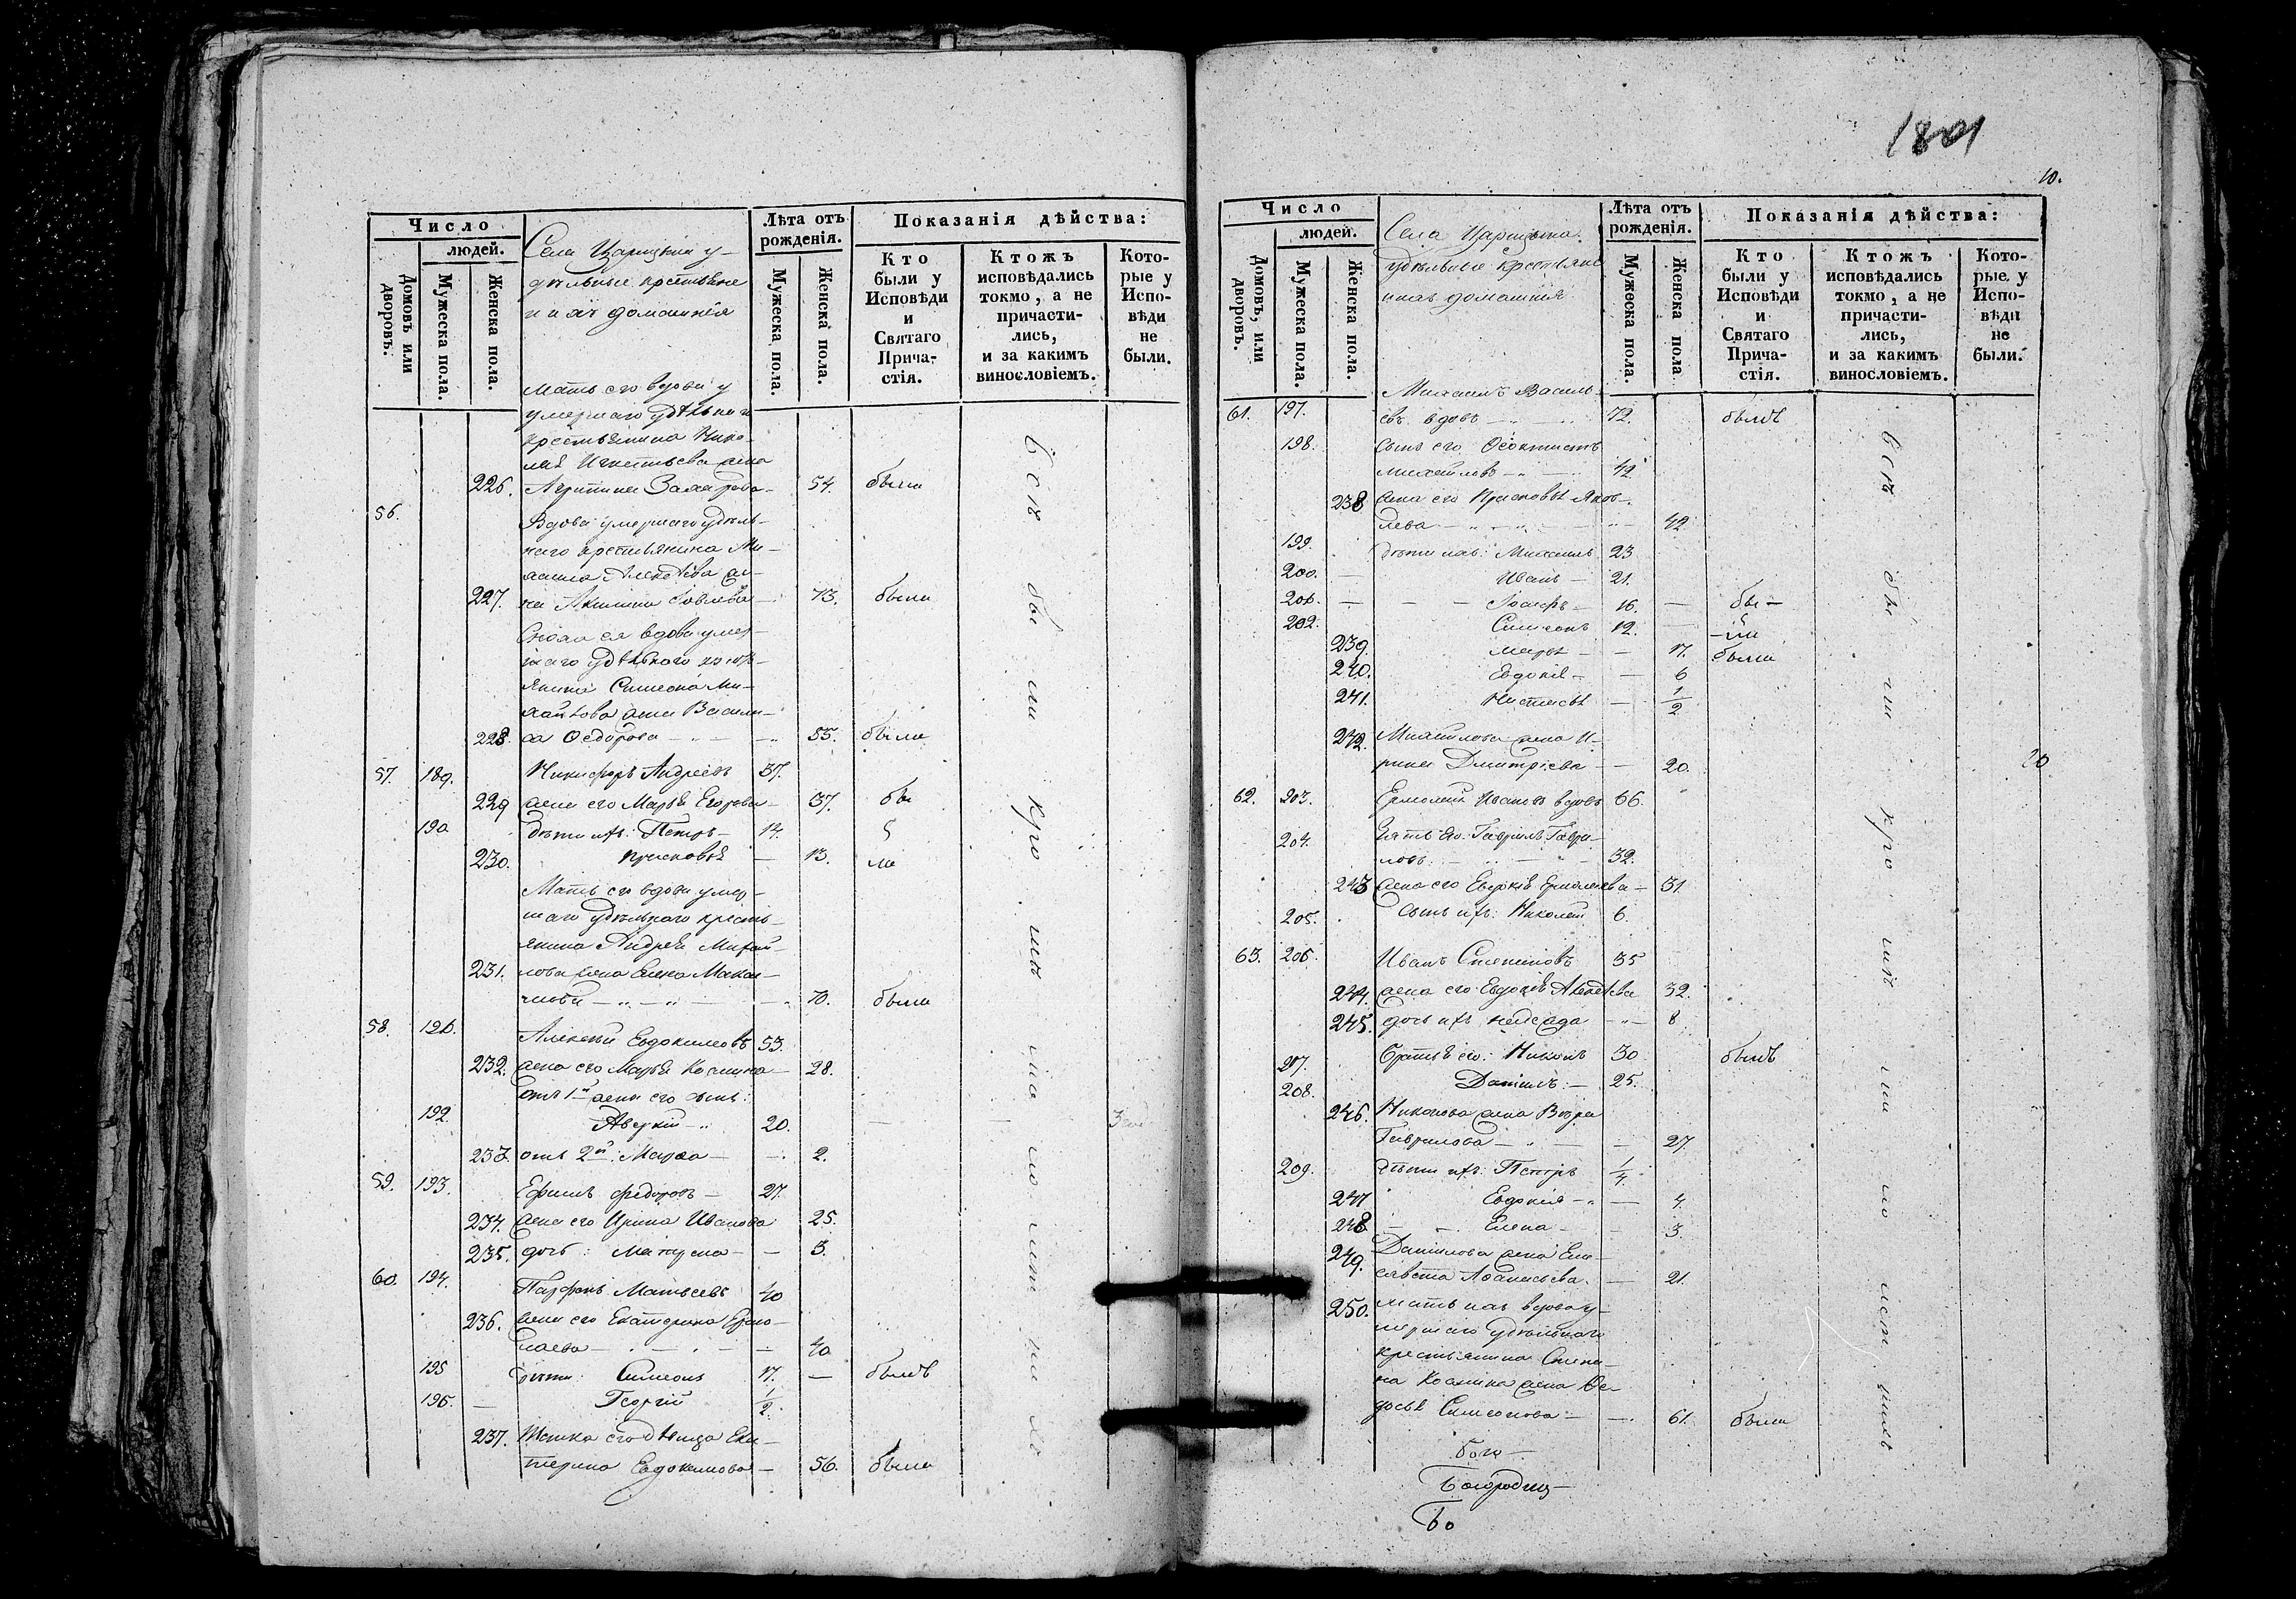 Число
людей.
Домовъ или дворовъ.
Мужеска пола.
Женска пола.
Села Царицына у-
дѣльные крестьяне
и ихъ домашнія
Лѣта отъ рожденія.
Мужеска пола.
Женска пола.
Показанія дѣйства:
Кто были у Исповѣди и Святаго Причастія.
Ктожъ исповѣдались токмо, а не причастились, и за какимъ винословіемъ.
Которые у Исповѣди не были.
Мать его вдова у
умершаго удѣльнаго
крестьянина Нико-
лая Игнатьева жена
226. Агрипина Захарова 54. была
56. Вдова умершаго удѣль-
наго крестьянина Ми-
хаила Алексѣева же-
227. на Акилина 73. была
Сноха ея вдова умер-
шаго удѣльнаго крест-
янина Симеона Ми-
хайлова жена Васили-
228. са Ѳедорова 55. была
57. 189. Никифоръ Андреевъ 37.
229 жена его Марья Егорова 37. бы
190 дѣти ихъ: Петръ 14.
230. Прасковья 13. ли
Мать его вдова умер-
шаго удѣльнаго кресть-
янина Андрея Михай-
231. лова жена Елена Макси-
мова 70. была
58. 191. Алексѣй Евдокимовъ 53.
232. жена его Марья Козмина 28.
отъ 1й жены его сынъ:
192. Аверкій 20.
233. отъ 2й: Марѳа 2.
59. 193. Ефимъ Федоровъ 27.
234. жена его Ирина Иванова 25.
235. дочь: Матрена 3.
60. 194. Парфенъ Матвеевъ 40
236. жена его Екатерина Ермо-
лаева 40
195 дѣти: Симеонъ 17. былъ
196. Георгій 1/2.
237. Тетка его дѣвица Ека-
терина Евдокимова 56. была
всѣ бы ли кро мѣ ма ло лѣт ни хъ
1801
10.
Число
людей.
Домовъ, или дворовъ.
Мужеска пола.
Женска пола.
Села Царицына
удѣльные крестьяне
и ихъ домашнія
Лѣта отъ рожденія.
Мужеска пола.
Женска пола.
Показанія дѣйства:
Кто были у Исповѣди и Святаго Причастія.
Ктожъ исповѣдались токмо, а не причастились, и за какимъ винословіемъ.
Которые у Исповѣди не были.
Михаилъ Василь-
61. 197. евъ вдовъ 72. былъ
198. сынъ его Ѳеоктистъ
Михайловъ 42.
238 жена его Прасковья Яков-
лева 42
199. дѣти ихъ: Михаилъ 23
200. Иванъ 21.
201. Іосифъ 16. бы-
202. Симеонъ 12. -ли
239. Марья 17. была
240. Евдокія 6
241. Настасья 1/2
242. Михайлова жена И-
рина Дмитріева 20.
20
62. 203. Ермолай Ивановъ вдовъ 66.
204. Зять его: Гаврилъ Гаври-
ловъ 32.
243 жена его Евдокія Ермолаева 31.
205. сынъ ихъ: Николай 6.
63. 206. Иванъ Степановъ 35
244. жена его Евдокія Алексѣева 32.
245. дочь ихъ 8
207. братья его: Никонъ 30 былъ
208. Даніилъ 25.
246. Никонова жена Вѣра
Гаврилова 27.
209. дѣти ихъ: Петръ 1/4.
247 Евдокія 4.
248 Елена 3.
249. Даніилова жена Ели-
савета Аѳанасьева 21.
250. мать ихъ вдова у-
мершаго удѣльнаго
крестьянина Степа-
на Козмина жена Ѳе-
досья Симеонова 61. была
всѣ бы ли кро мѣ ма ло лѣт нихъ
Бого
Богородиц-
Бо